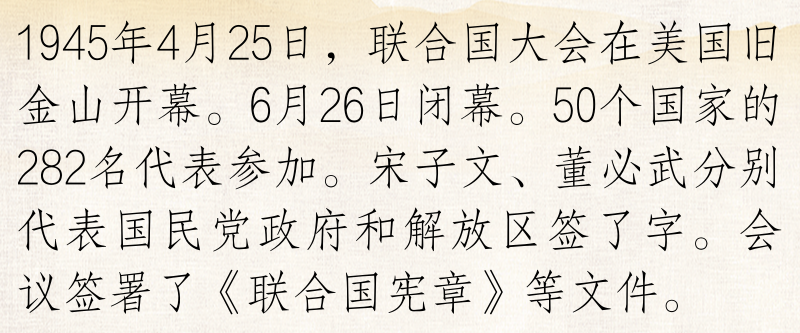 1945年4月25日，联合国大会在美国旧
金山开幕。6月26日闭幕。50个国家的
282名代表参加。宋子文、董必武分别
代表国民党政府和解放区签了字。会
议签署了《联合国宪章》等文件。